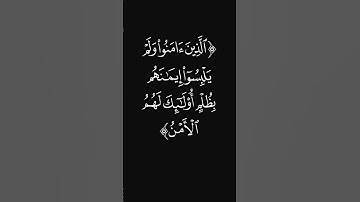 ﴿ٱلَّذِينَ ءَامَنُوا۟ وَلَمْ
يَلْبِسُوٓا۟ إِيمَـٰنَهُم
بِظُلْمٍ أُو۟لَـٰٓئِكَ لَهُمُ
ٱلْأَمْنُ﴾